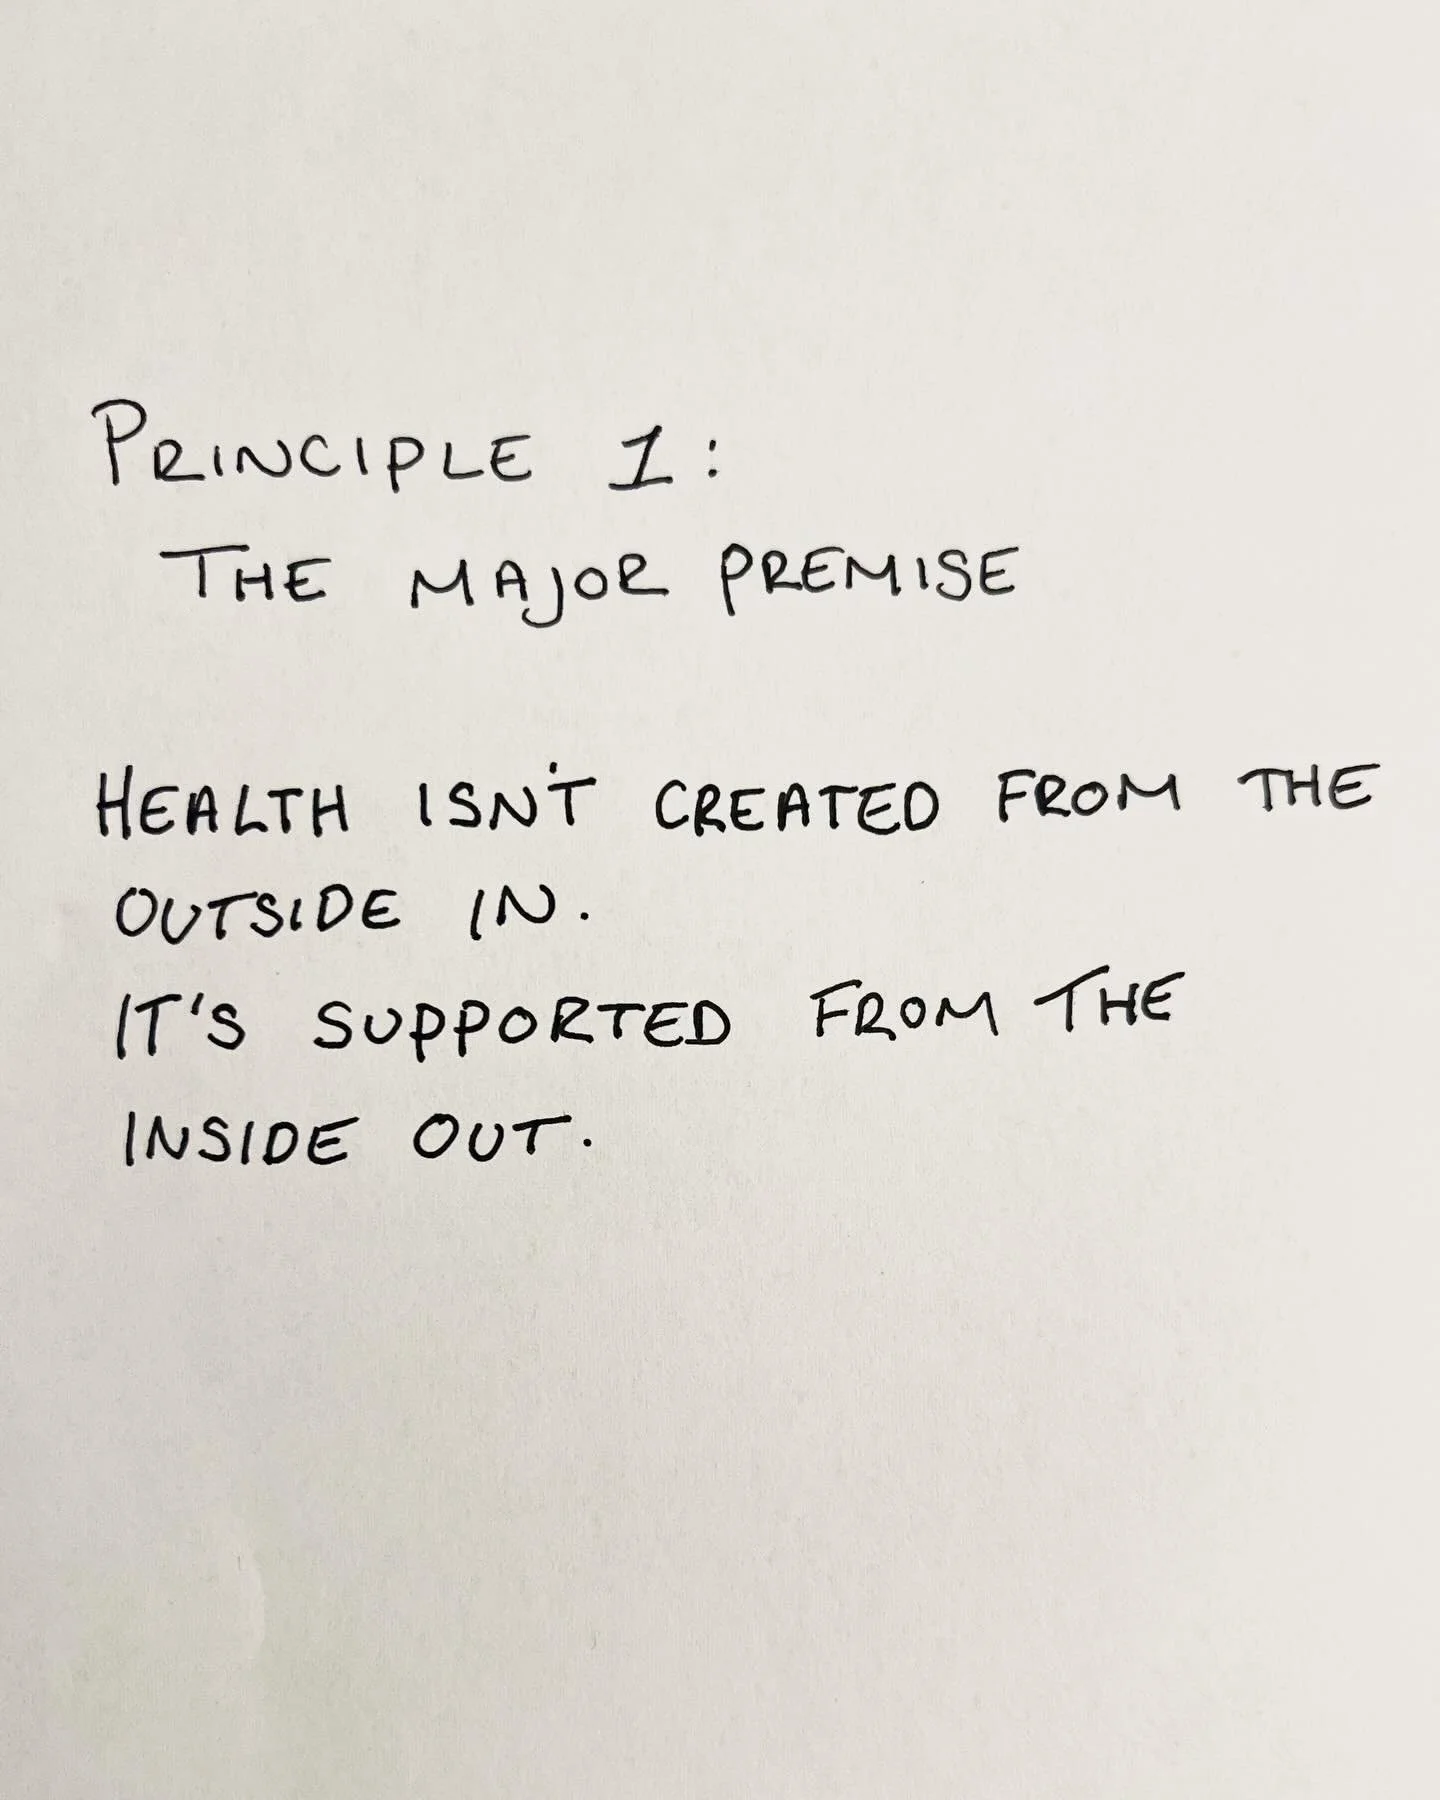 PRINCIPLE 1:
THE MAJOR PREMISE
HEALTH ISN'T CREATED FROM THE
OUTSIDE IN.
IT'S SUPPORTED FROM THE
INSIDE OUT.